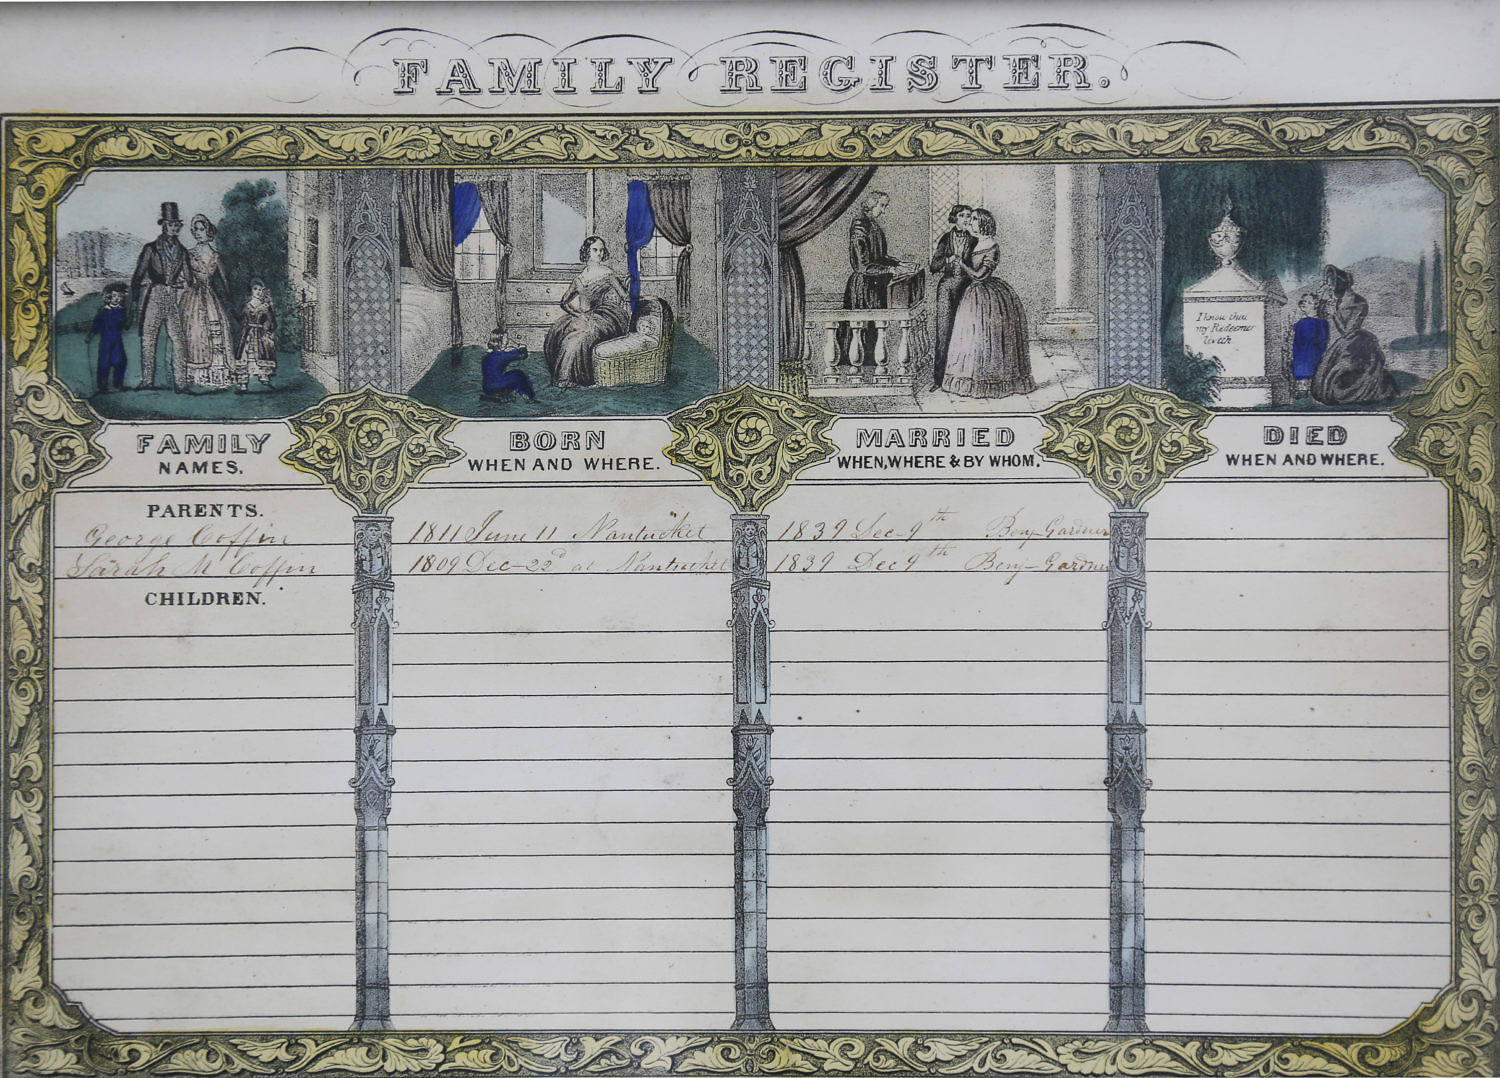 FAMILY REGISTER.
I know that
my Redeemer
liveth
FAMILY
NAMES.
BORN
WHEN AND WHERE.
MARRIED
WHEN, WHERE & BY WHOM.
DIED
WHEN AND WHERE.
PARENTS.
George Coffin 1811 June 11 Nantucket 1839 Dec-9th Benj-Gardner
Sarah M Coffin 1809 Dec-22d at Nantucket 1839 Dec 9th Benj-Gardner
CHILDREN.